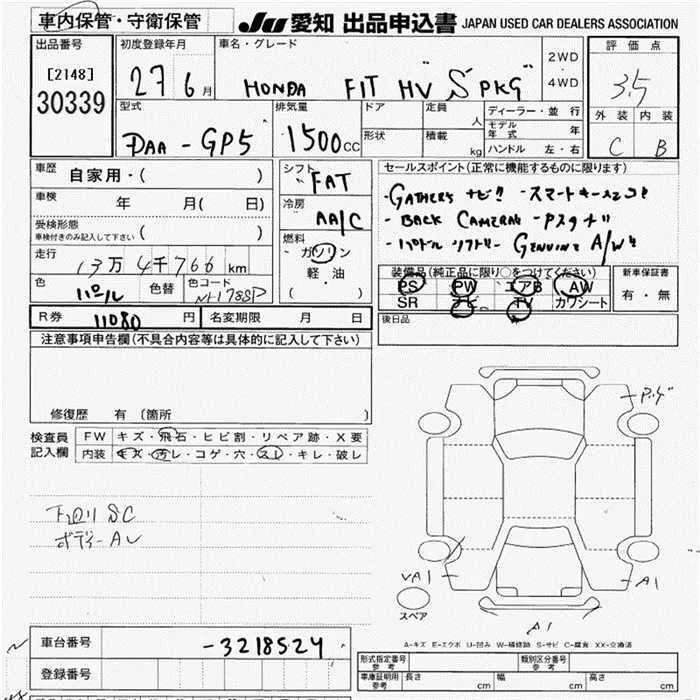 車内保管・守衛保管 JU 愛知 出品申込書 JAPAN USED CAR DEALERS ASSOCIATION
出品番号 初度登録年月 車名・グレード 評価点
[2148] 27 6月 HONDA FIT HV "S PKG" 2WD・4WD 3.5
30339
型式 排気量 ドア 定員 人 ディーラー・並行 外装 内装
DAA-GP5 1500cc 形状 積載 kg モデル年式 年 C B
ハンドル 左・右
車歴 自家用・( ) シフト FAT セールスポイント(正常に機能するものに限ります)
車検 年 月( 日) 冷房 AA/C ・GATHERS ナビ!! ・スマートキー
受検形態 ・BACK CAMERA
車検付きのみ記入して下さい ( ) 燃料 ・パドルシフト ・GENUINE A/W
走行 13万4千766km ガソリン
軽・油
( )
装備品(純正品に限り○をつけてください) 新車保証書
色 色替 色コード PS PW エアB AW 有・無
パール NH175SP SR ナビ TV カワシート
R券 11080円 名変期限 月 日 後日品
注意事項申告欄(不具合内容等は具体的に記入して下さい)
修復歴 有(箇所 )
検査員記入欄 FW キズ・飛石・ヒビ割・リペア跡・X要
内装 キズ・汚レ・コゲ・穴・スレ・キレ・破レ
下回り SC
ボディーAU
A1
A1
スペア
A1
A-キズ E-エクボ U-凹み W-補修跡 S-サビ C-腐食 XX-交換済
車台番号 -3218524
登録番号
形式指定番号 参考 類別区分番号 参考
車庫証明用 参考 長さ cm 幅 cm 高さ cm